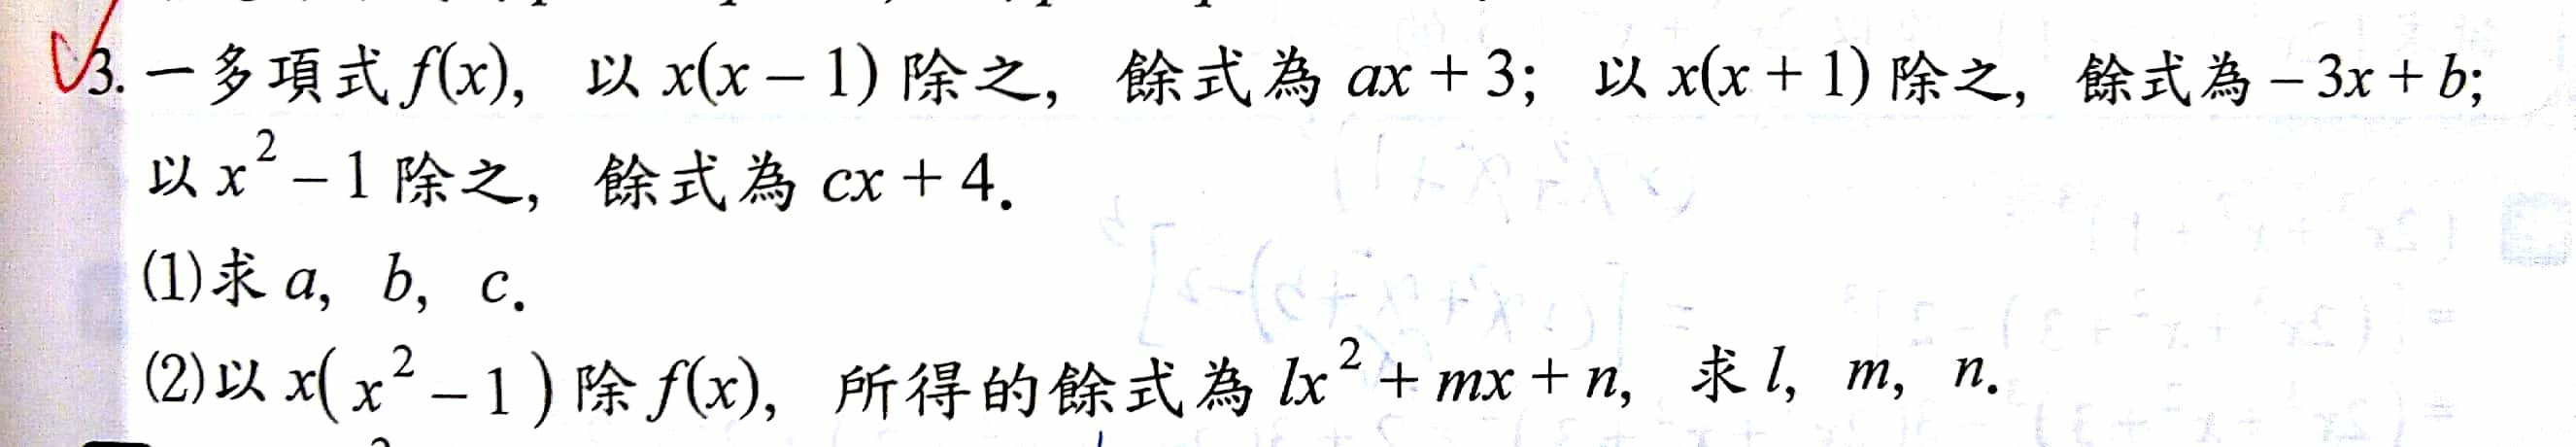 3. 一多項式 f(x), 以 x(x − 1) 除之, 餘式為 ax + 3; 以 x(x + 1) 除之, 餘式為 − 3x + b;
以 x² − 1 除之, 餘式為 cx + 4.
(1)求 a, b, c.
(2)以 x(x² − 1) 除 f(x), 所得的餘式為 lx² + mx + n, 求 l, m, n.